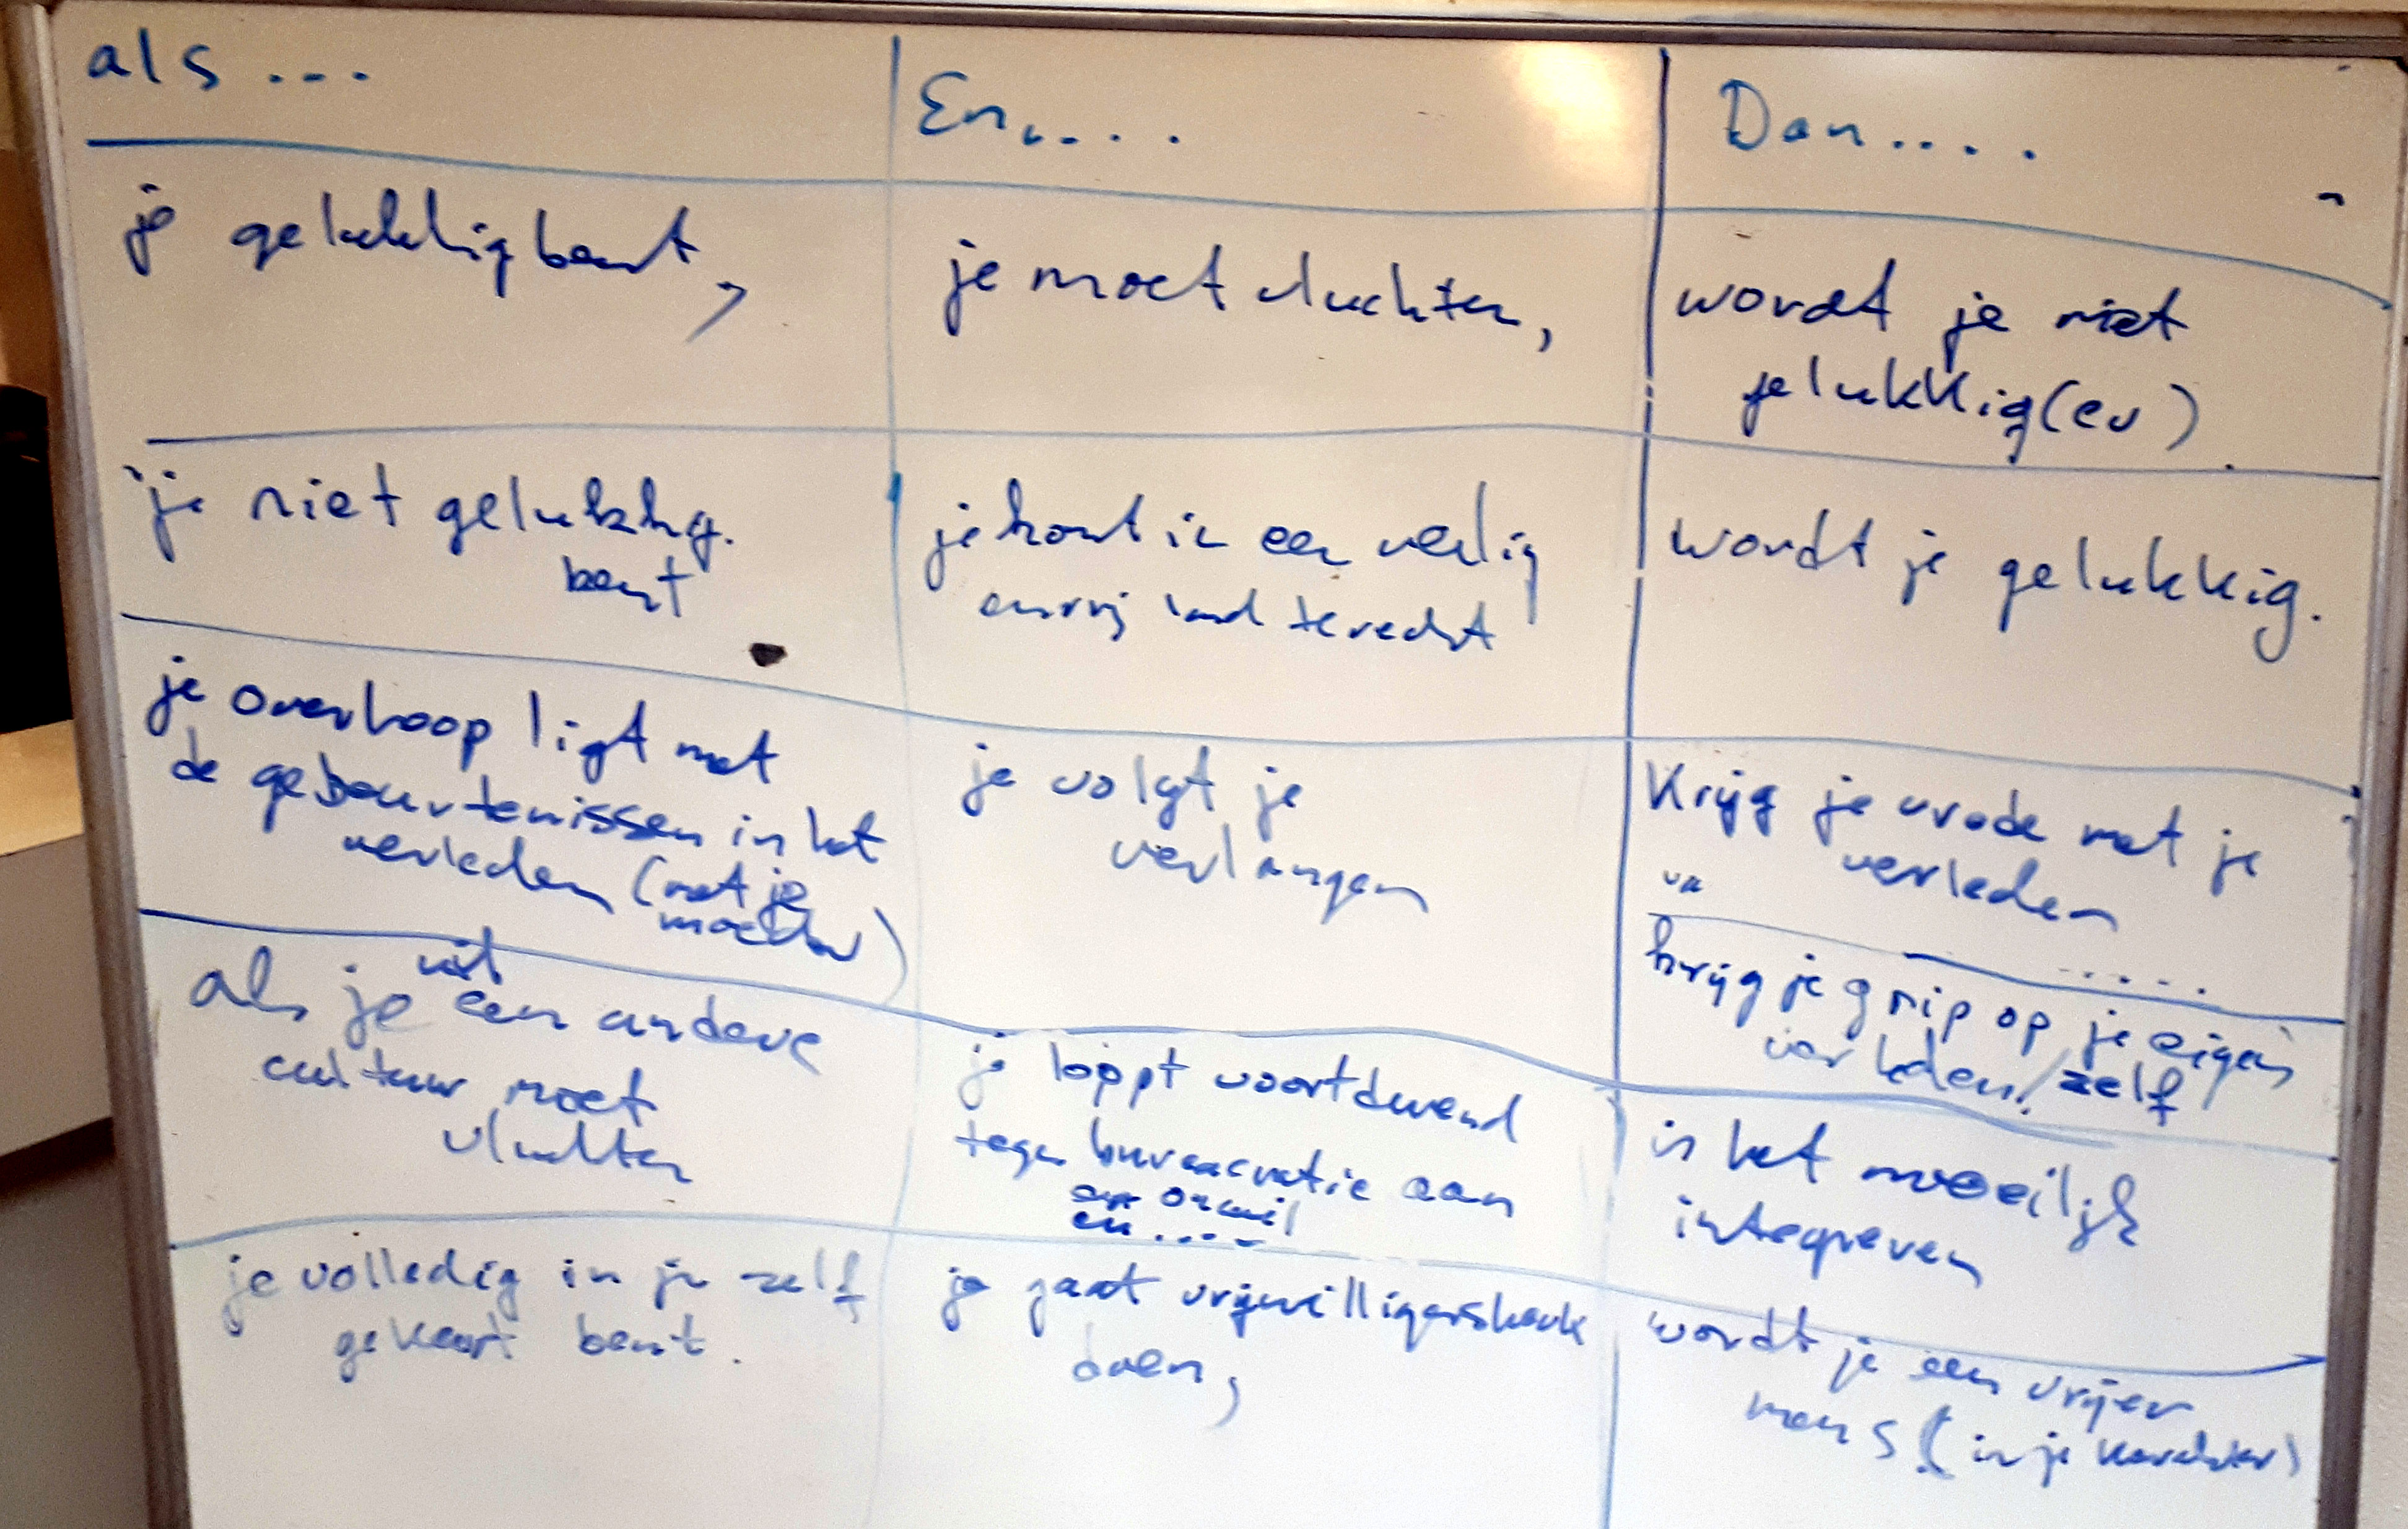 als ...
En....
Dan....
je gelukkig bent,
je moet vluchten,
wordt je niet
gelukkig(er)
je niet gelukkig.
bent
je komt in een veilig
en vrij land terecht
wordt je gelukkig.
je overhoop ligt met
de gebeurtenissen in het
verleden (met je
moeder)
je volgt je
verlangen
Krijg je vrede met je
verleden
....
krijg je grip op je eigen
verleden/zelf
als je uit een andere
cultuur moet
vluchten
je loopt voortdurend
tegen bureaucratie aan
en onwil
en ....
is het moeilijk
integreren
je volledig in je zelf
gekeert bent.
je gaat vrijwilligerswerk
doen,
wordt je een vrijer
mens (in je karakter)